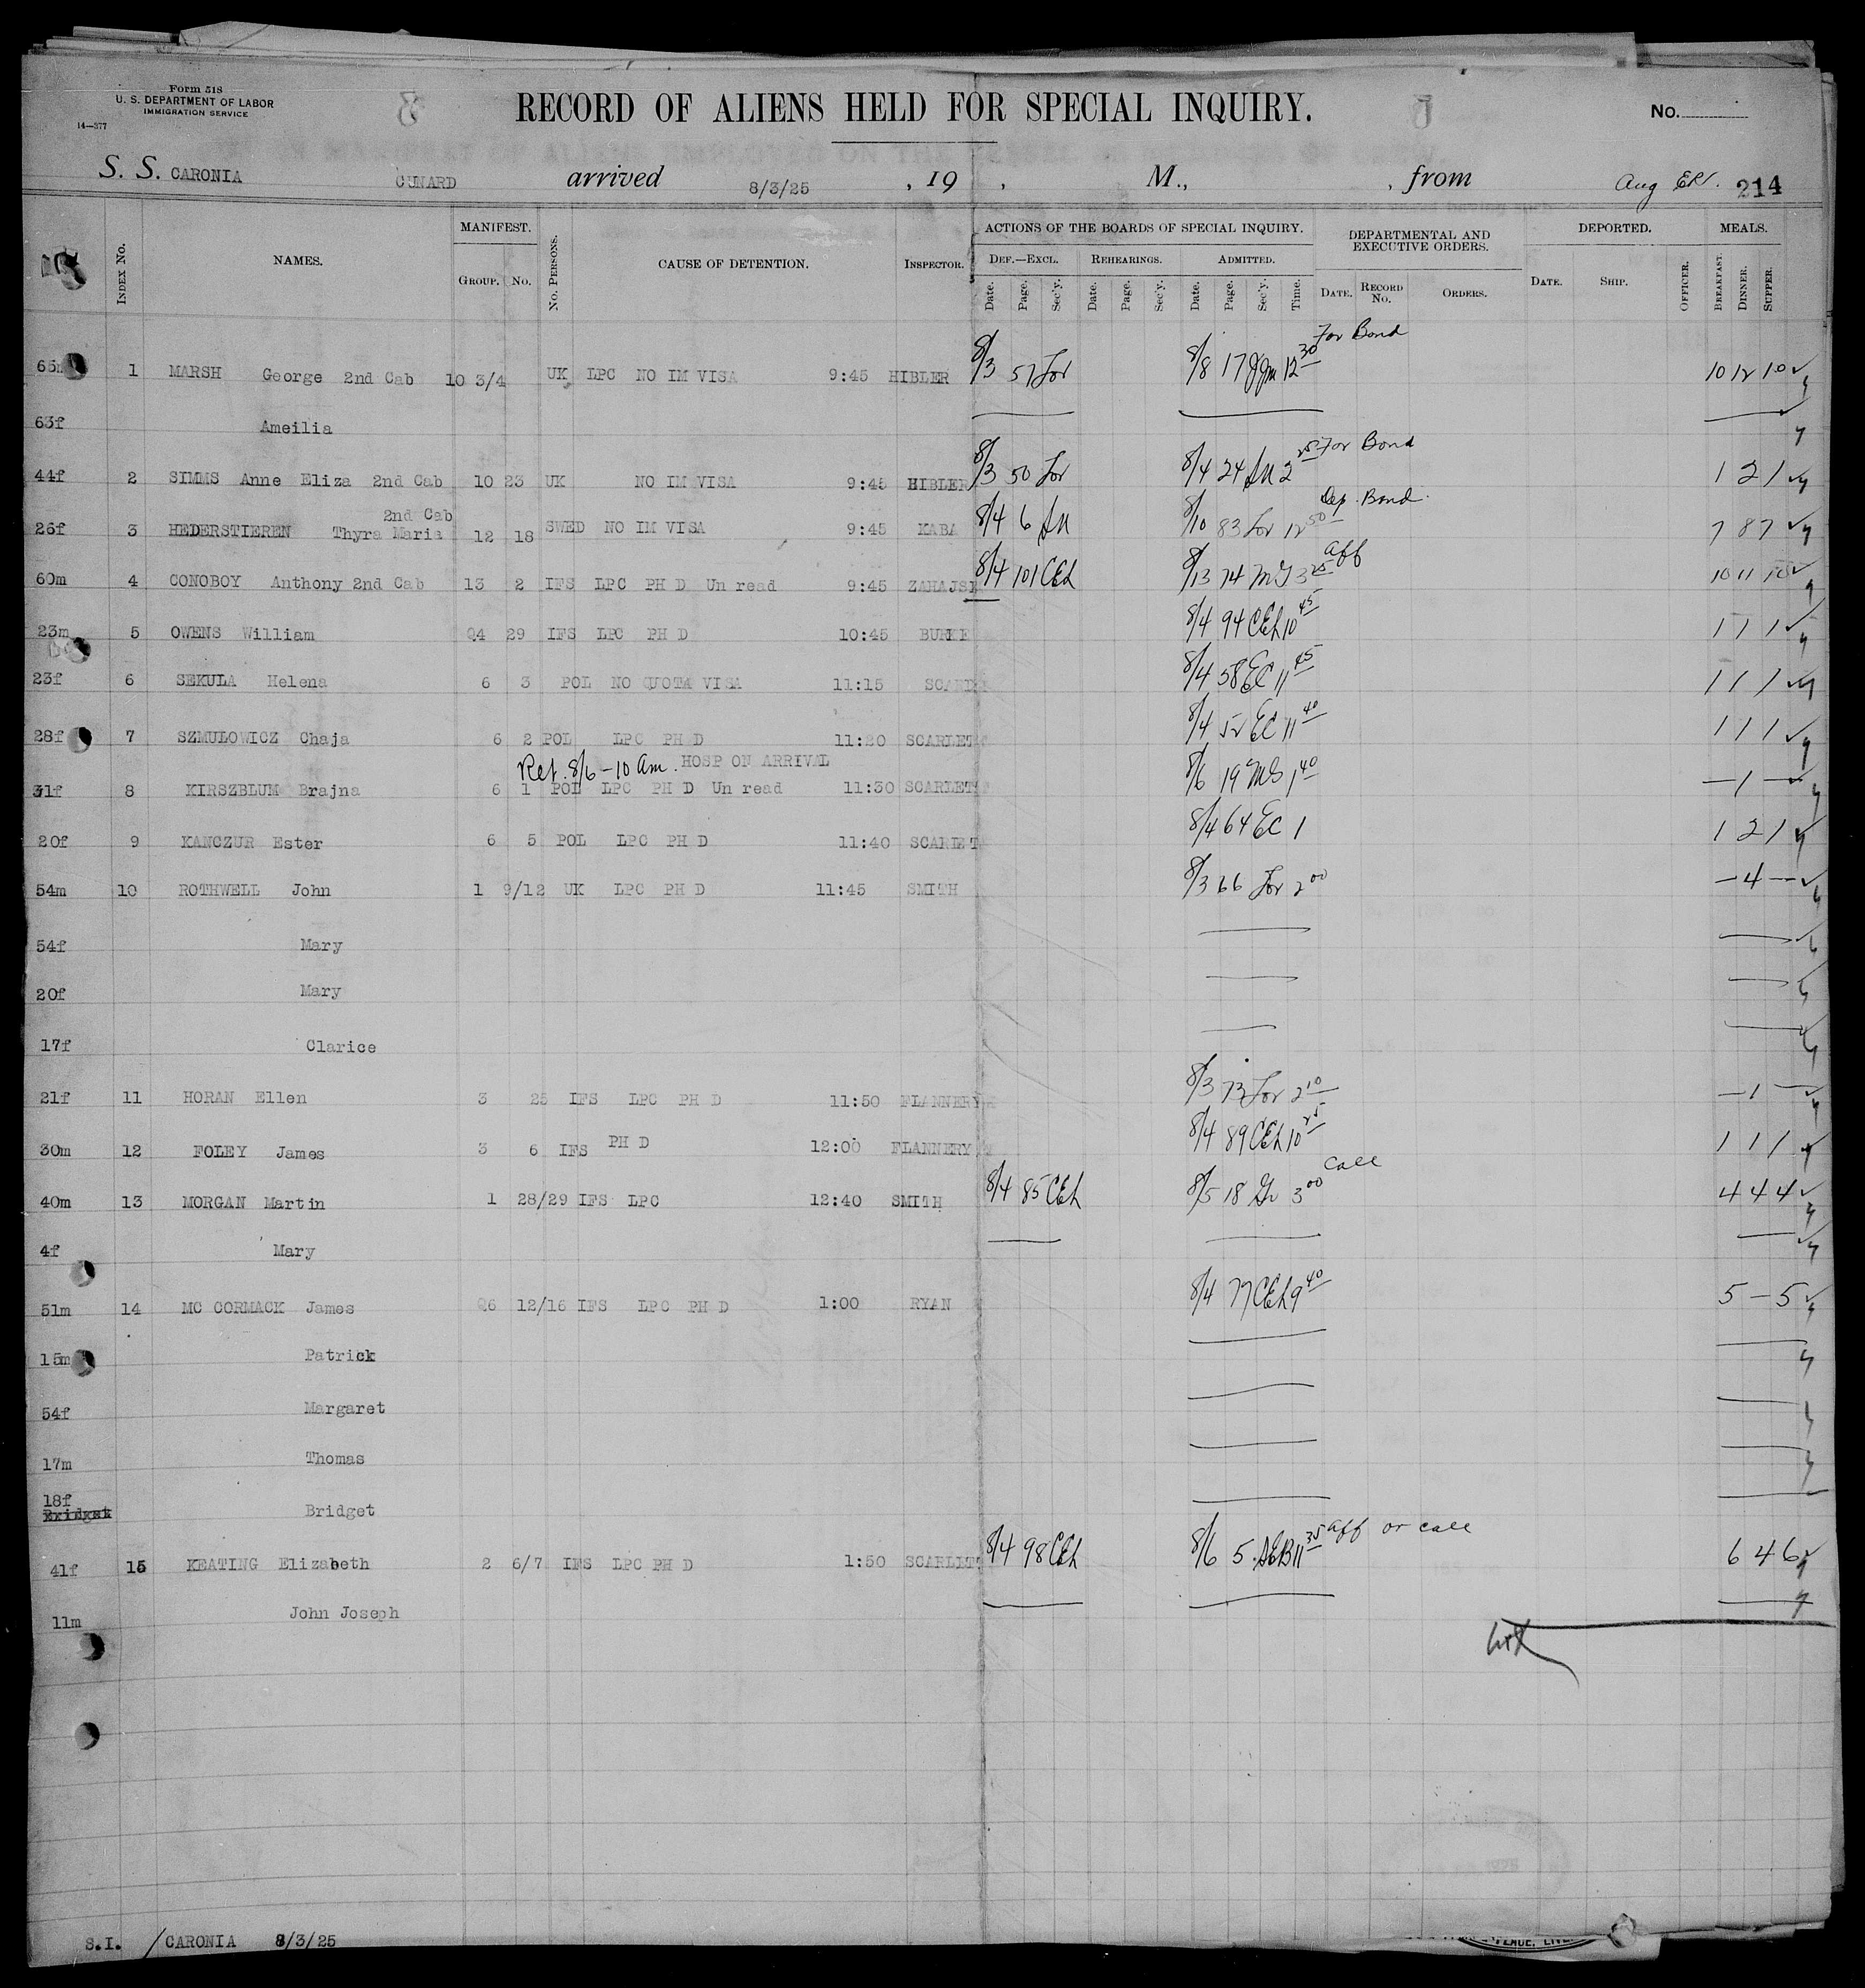 Form 518
U. S. DEPARTMENT OF LABOR
IMMIGRATION SERVICE
14—377
RECORD OF ALIENS HELD FOR SPECIAL INQUIRY.
No.
S. S. CARONIA CUNARD arrived 8/3/25 , 19 , M., , from Aug 214
INDEX NO. NAMES. MANIFEST. GROUP. NO. NO. PERSONS. CAUSE OF DETENTION. INSPECTOR. ACTIONS OF THE BOARDS OF SPECIAL INQUIRY. DEF.—EXCL. Date. Page. Sec'y. REHEARINGS. Date. Page. Sec'y. ADMITTED. Date. Page. Sec'y. Time. DEPARTMENTAL AND EXECUTIVE ORDERS. DATE. RECORD NO. ORDERS. DEPORTED. DATE. SHIP. OFFICER. MEALS. BREAKFAST. DINNER. SUPPER.
For Bond
65m 1 MARSH George 2nd Cab 10 3/4 UK LPC NO IM VISA 9:45 HIBLER 8/3 57 For 8/8 17 12 30 10 12 10
63f Ameilia
44f 2 SIMMS Anne Eliza 2nd Cab 10 23 UK NO IM VISA 9:45 HIBLER 8/3 50 For 8/4 24 2 25 For Bond 1 2 1
2nd Cab
26f 3 HEDERSTIEREN Thyra Maria 12 18 SWED NO IM VISA 9:45 KABA 8/4 6 8/10 83 For 12 50 Dep. Bond. 7 8 7
60m 4 CONOBOY Anthony 2nd Cab 13 2 IFS LPC PH D Un read 9:45 8/4 101 CEL 74 3 25 aff 10 11 10
23m 5 OWENS William 29 IFS LPC PH D 10:45 BURKE 8/4 94 CEL 10 45 1 1 1
23f 6 SEKULA Helena 6 3 POL NO QUOTA VISA 11:15 8/4 58 EC 11 45 1 1 1
28f 7 SZMULOWICZ Chaja 6 2 POL LPC PH D 11:20 SCARLET 8/4 52 EC 11 40 1 1 1
Ret. 8/6 – 10 am. HOSP ON ARRIVAL
31f 8 KIRSZBLUM Brajna 6 1 POL LPC PH D Un read 11:30 SCARLET 8/6 19 1 40 — 1 —
20f 9 KANCZUR Ester 6 5 POL LPC PH D 11:40 SCARLET 8/4 64 EC 1 1 2 1
54m 10 ROTHWELL John 1 9/12 UK LPC PH D 11:45 SMITH 8/3 66 For 2 00 — 4 —
54f Mary
20f Mary
17f Clarice
21f 11 HORAN Ellen 3 25 IFS LPC PH D 11:50 FLANNERY 8/3 73 For 2 10 — 1 —
30m 12 FOLEY James 3 6 IFS PH D 12:00 FLANNERY 8/4 89 CEL 10 25 1 1 1
40m 13 MORGAN Martin 1 28/29 IFS LPC 12:40 SMITH 8/4 85 CEL 8/5 18 3 00 Call 4 4 4
4f Mary
51m 14 MC CORMACK James 12/16 IFS LPC PH D 1:00 RYAN 8/4 77 CEL 9 40 5 — 5
15m Patrick
54f Margaret
17m Thomas
18f
Bridget Bridget
41f 15 KEATING Elizabeth 2 6/7 IFS LPC PH D 1:50 SCARLET 8/4 98 CEL 8/6 5 11 35 aff or call 6 4 6
11m John Joseph
S.I. / CARONIA 8/3/25